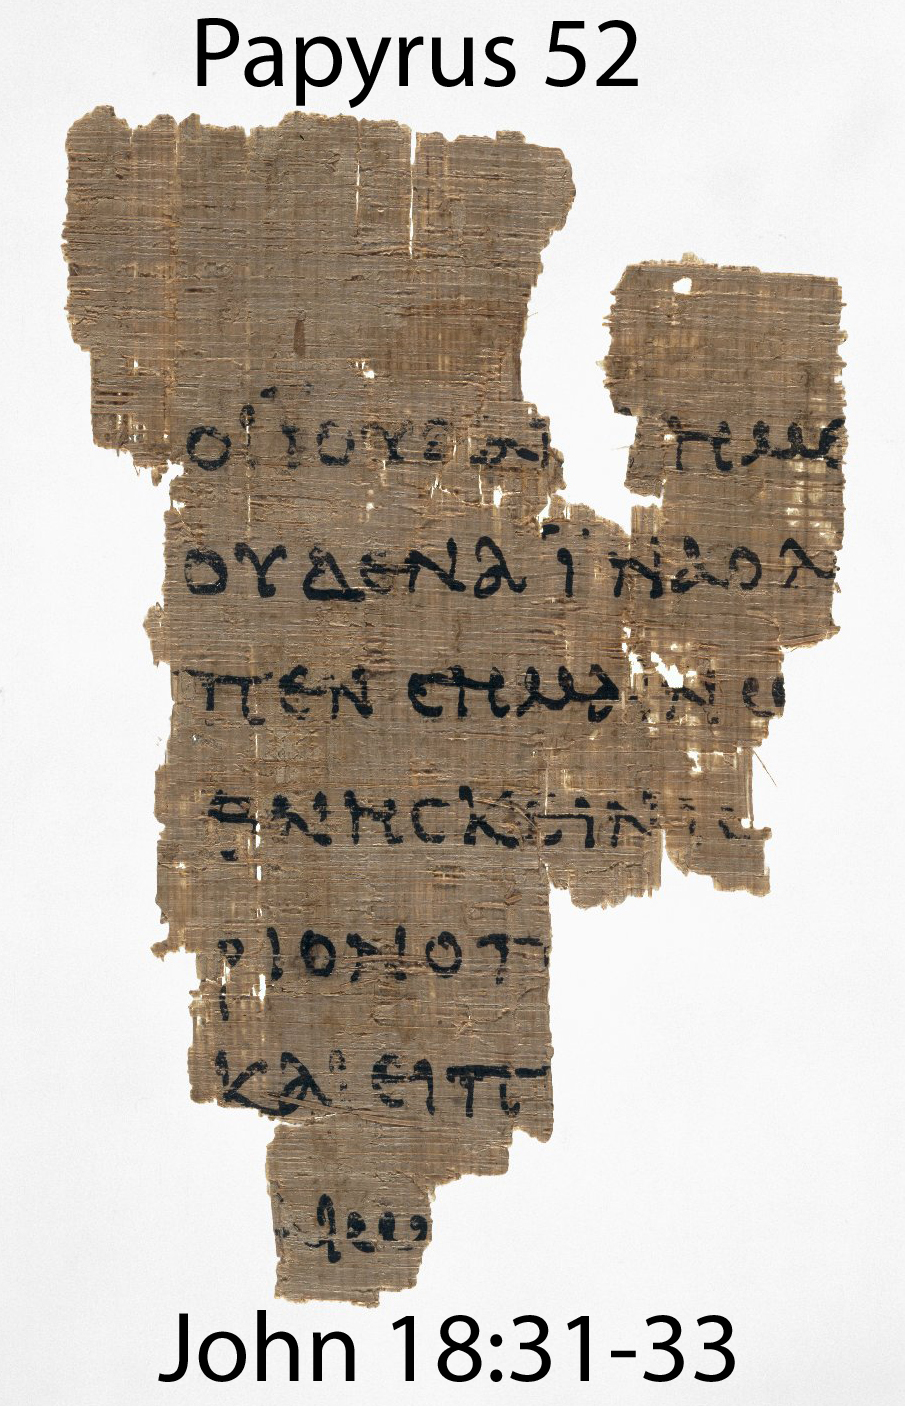 Papyrus 52
ΟΙ ΙΟΥΔΑΙ ΗΜΕ
ΟΥΔΕΝΑ ΪΝΑ Ο Λ
ΠΕΝ ΣΗΜΑΙΝΩ
ΘΝΗΣΚΕΙΝ ΙΣ
ΡΙΟΝ Ο Π
ΚΑΙ ΕΙΠ
ΑΙΩ
John 18:31-33